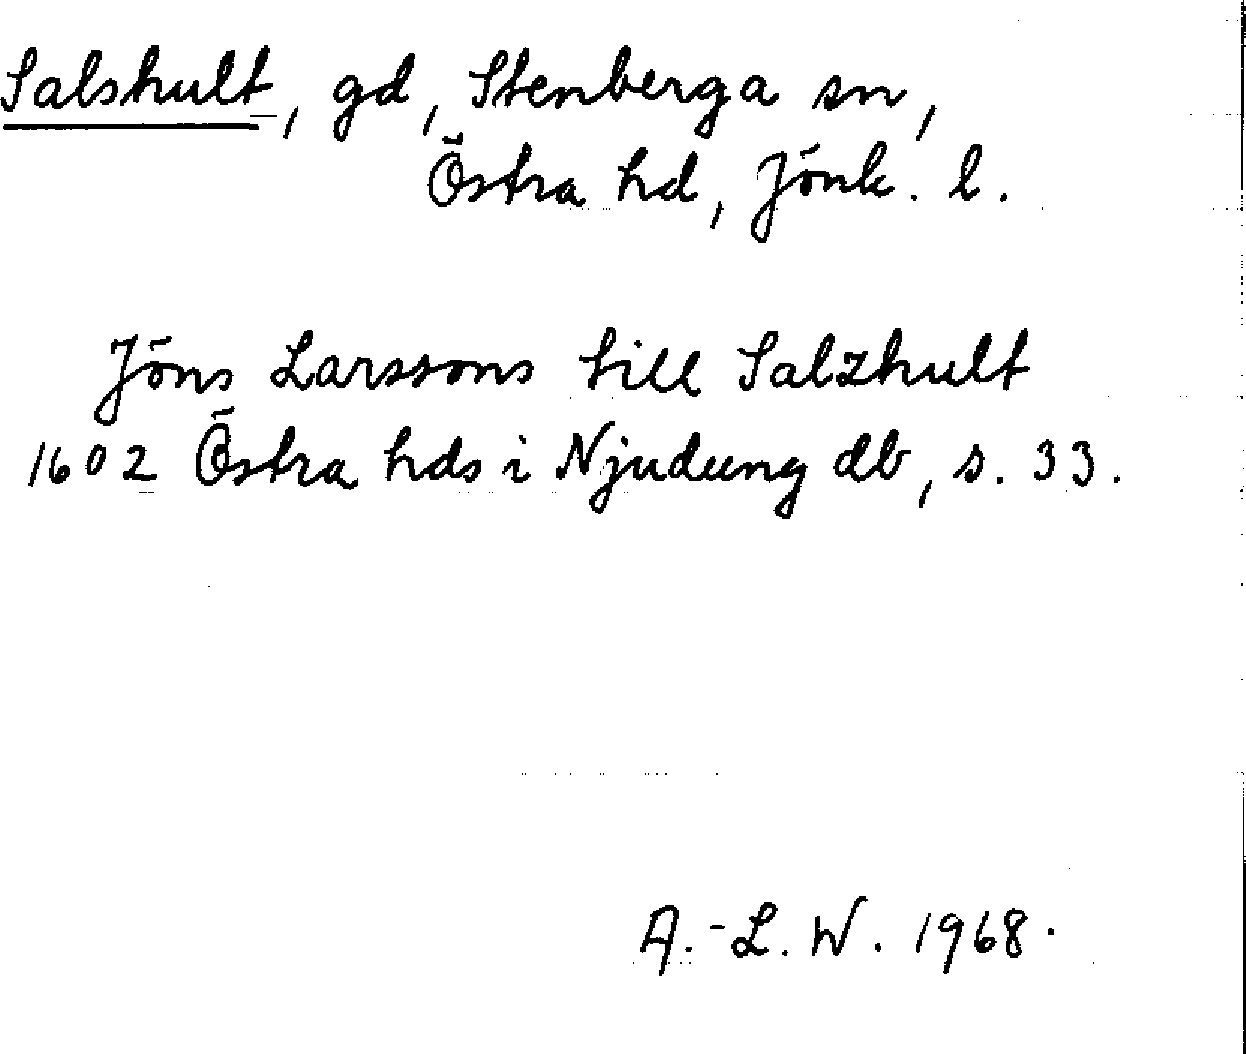 Salshult, gd, Stenberga sn,
Östra hd, Jönk. l.
Jöns Larssons till Salzhult
1602 Östra hds i Njudung db, s. 33.
A.-L. W. 1968.